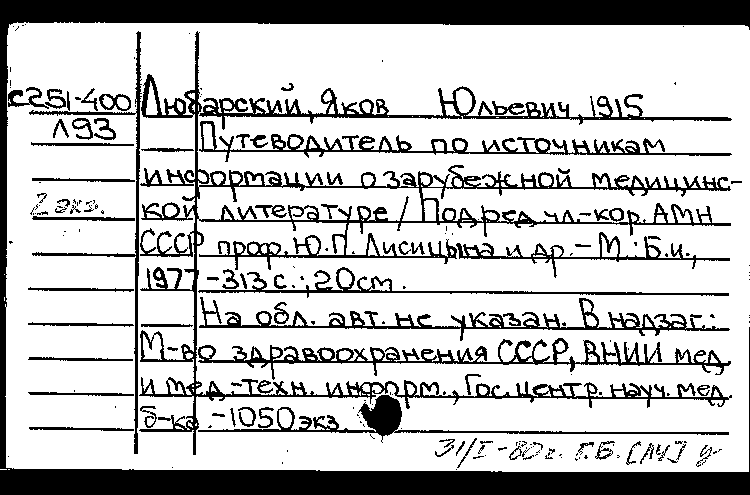 С251-400 Любарский, Яков Юльевич, 1915
Л93 Путеводитель по источникам
информации о зарубежной медицинс-
2 экз. кой литературе / Под ред. чл.-кор. АМН
СССР проф. Ю.П. Лисицына и др. - М.: Б.и.,
1977 - 313 с.; 20 см.
На обл. авт. не указан. В надзаг.:
М-во здравоохранения СССР, ВНИИ мед.
и мед.-техн. информ., Гос. центр. науч. мед.
б-ка. - 1050 экз.
31/I-80 г. Г.Б. [ЛЧ]